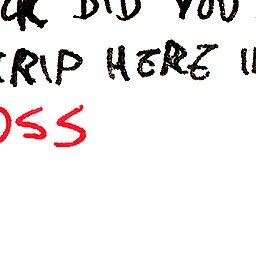 CK DID YOU
CRIP HERE I
OSS